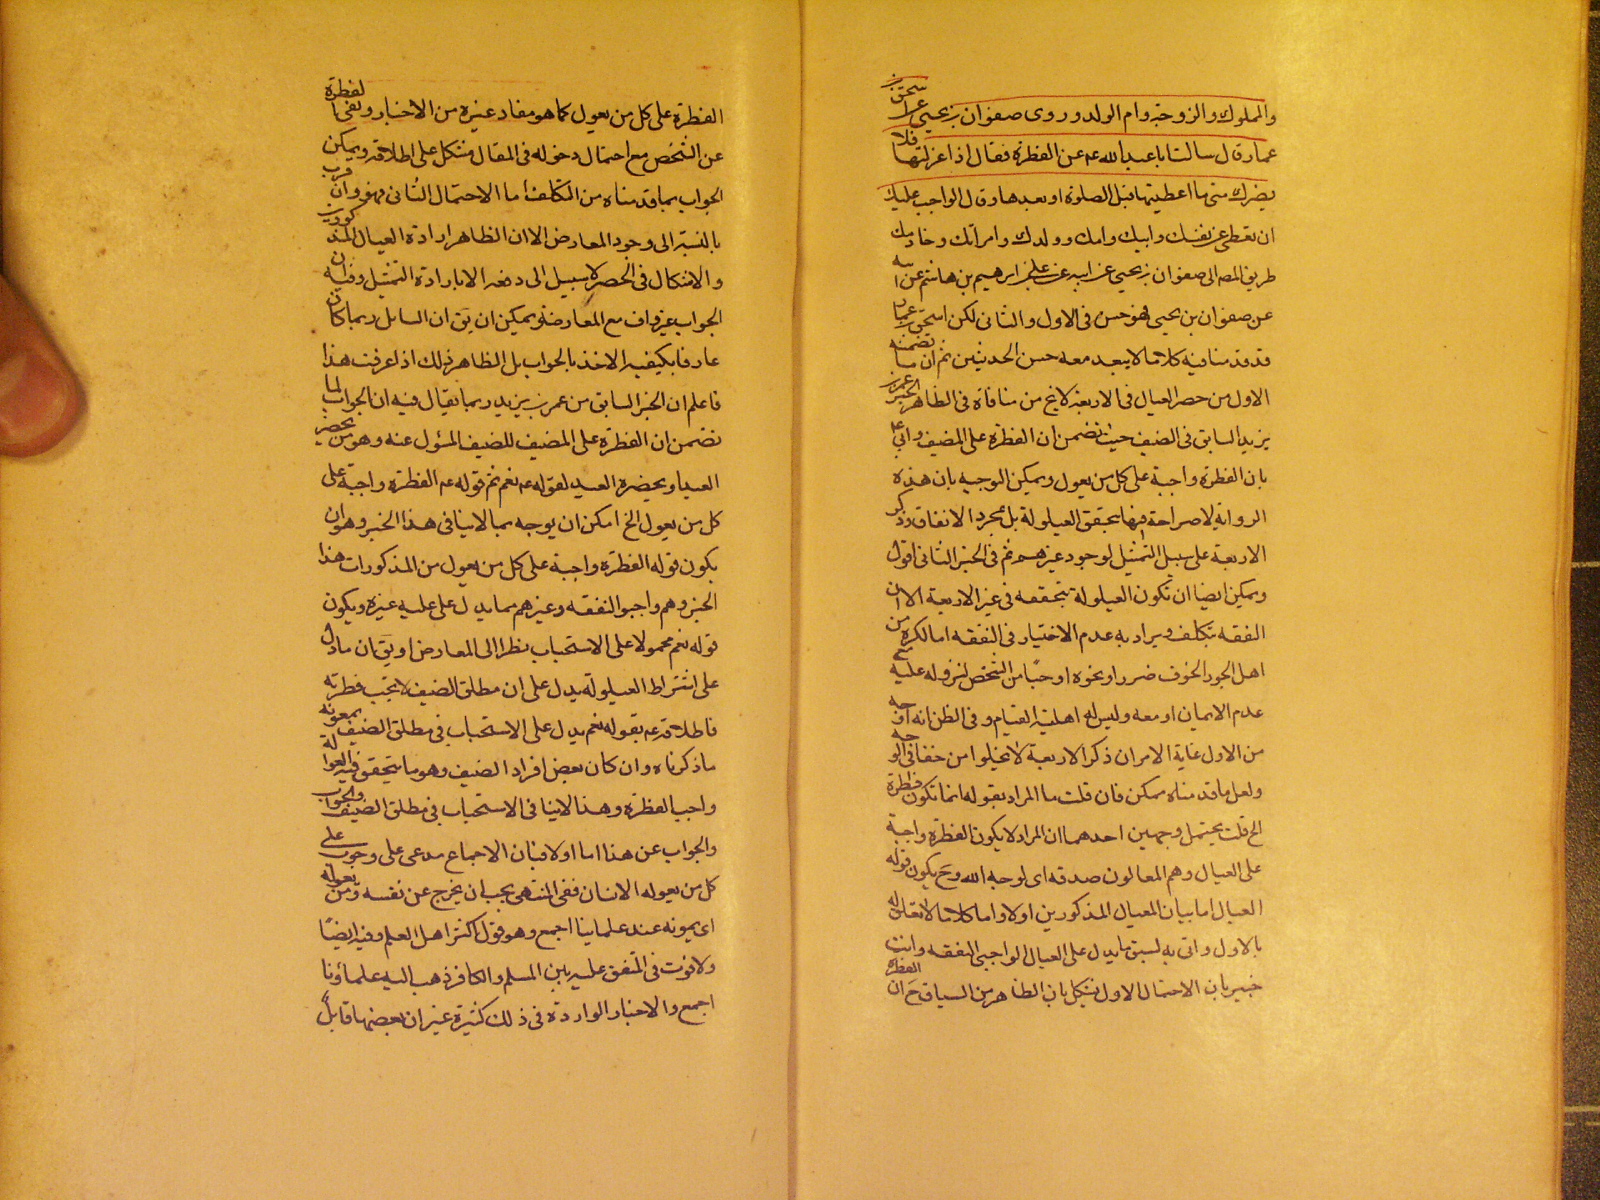 والمملوك والزوجة وام الولد وروى صفوان بن يحيى عن اسحق بن
عمار قال سالت ابا عبد الله عه عن الفطرة فقال اذا عزلتها فلا
يضرك متى ما اعطيتها قبل الصلوة او بعدها وقال الواجب عليك
ان تعطى عن نفسك وابيك وامك وولدك وامراتك وخادمك
طريق المصه الى صفوان بن يحيى عن ابيه عن على بن ابرهيم بن هاشم عن ابيه
عن صفوان بن يحيى فهو حسن فى الاول والثانى لكن اسحق بن عمار
قد قدمنا فيه كلاما لا يبعد معه حسن الحديثين ثم ان ما تضمنه
الاول من حصر العيال فى الاربعة لا يخ من منافاة فى الظاهر لخبر عمر بن
يزيد السابق فى الضيف حيث تضمن ان الفطرة على المضيف واتى عه
بان الفطرة واجبة على كل من يعول ويمكن التوجيه بان هذه
الرواية لا صراحة فيها بتحقق العيلولة بل بمجرد الانفاق وذكر
الاربعة على سبيل التمثيل لوجود غيرهم ثم فى الخبر الثانى اقول
ويمكن ايضا ان تكون العيلولة متحققه فى غير الاربعة الا ان
النفقه بتكلف ويراد به عدم الاختيار فى النفقه اما لكره من
اهل الجود الخوف ضررا ونحوه او حبا من الشخص لنزوله عليه مع
عدم الايمان او معه وليس له اهلية القيام وفى الظن انه اوجه
من الاول غاية الامر ان ذكر الاربعة لا يخلوا من خفا فى الوجه
ولعل ما قدمناه ممكن فان قلت ما المراد بقوله انما تكون فطرة
الخ قلت يحتمل وجهين احدهما ان المراد لا يكون الفطرة واجبة
على العيال وهم المعالون صدقه اى لوجه الله وح يكون قوله
العيال اما بيان للعيال المذكورين اولا واما كلاما لا تعلق له
بالاول واتى به لسبق ما يدل على العيال الواجبى النفقه وانت
خبير بان الاحتمال الاول يشكل بان الظاهر من السياق ح ان الفطرة
الفطرة على كل من يعول كما هو مفاد غيره من الاخبار ونفى الفطرة
عن الشخص مع احتمال دخوله فى المقال مشكل على اطلاقه ويمكن
الجواب بما قدمناه من التكلف اما الاحتمال الثانى فهو وان قرب
بالنسبة الى وجود المعارض الا ان الظاهر ارادة العيال المذكورين
والاشكال فى الحصر لا سبيل الى دفعه الا بارادة التمثيل وفيه ان
الجواب غير واف مع المعارضة ويمكن ان يق ان السايل ربما كان
عارفا بكيفية الاخذ بالجواب بل الظاهر ذلك اذا عرفت هذا
فاعلم ان الخبر السابق من عمر بن يزيد ربما يقال فيه ان الجواب لما
تضمن ان الفطرة على المضيف للضيف المسئول عنه وهو من يحضر
العيد او يحضره العيد لقوله عه نعم ثم قوله عه الفطرة واجبة على
كل من يعول الخ امكن ان يوجه بما لا ينافى هذا الخبر وهو ان
يكون قوله الفطرة واجبة على كل من يعول من المذكورات هذا
الخبر وهم واجبوا النفقه وغيرهم مما يدل على عليه غيره ويكون
قوله نعم محمولا على الاستحباب نظرا الى المعارض او يق ان ما دل
على اشتراط العيلولة يدل على ان مطلق الضيف لا يجب فطرته
فاطلاقه عه بقوله نعم يدل على الاستحباب فى مطلق الضيف بمعونه
ما ذكرناه وان كان بعض افراد الضيف وهو ما يتحقق فيه العوله
واجب الفطرة وهذا لا ينافى الاستحباب فى مطلق الضيف والجواب
والجواب عن هذا اما اولا فبان الاجماع مدعى على وجوب على
كل من يعوله الانسان ففى المنتهى يجب ان يخرج عن نفسه ومن يعوله
اى يمونه عند علماينا اجمع وهو قول اكثر اهل العلم وفيه ايضا
ولا فرق فى المنفق عليه بين المسلم والكافر ذهب اليه علماؤنا
اجمع والاخبار الواردة فى ذلك كثيرة غير ان بعضها قابل